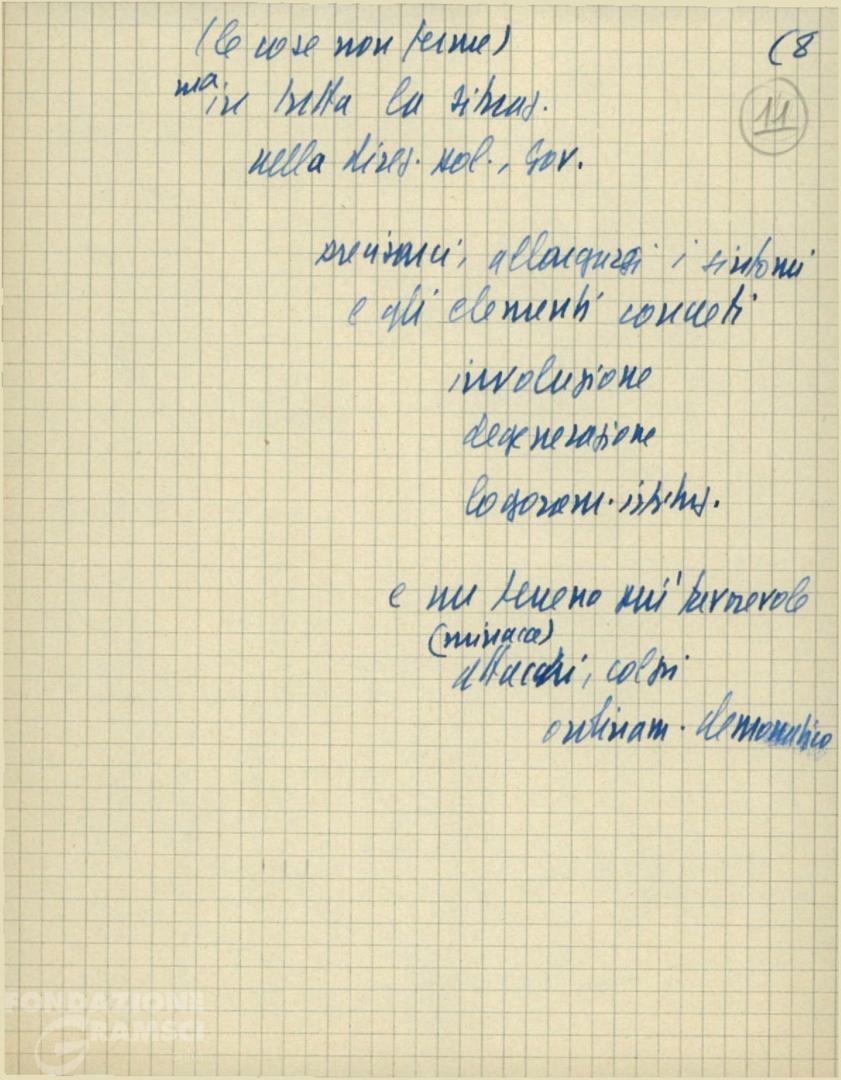 (le cose non ferme) (8
11
ma in tutta la situaz.
nella direz. pol., gov.
precisarsi, allargarsi i sintomi
e gli elementi concreti
involuzione
degenerazione
logoram. istituz.
e un terreno più favorevole
(minacce)
attacchi, colpi
ordinam. democratico
FONDAZIONE
GRAMSCI